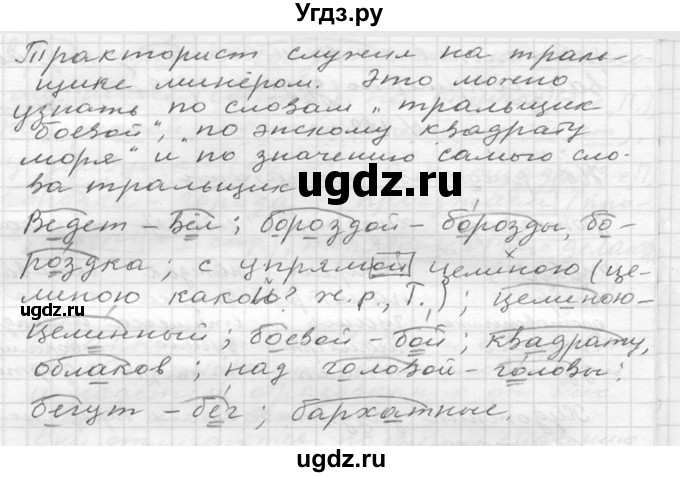 Угdz.ру
Тракторист служил на траль-
щике минёром. Это можно
узнать по словам „тральщик
боевой“, „по энскому квадрату
моря“ и по значению самого сло-
ва тральщик
ugdz.ru
Ведет – вёл; бороздой – борозды, бо-
роздка; с упрямой целиною (це-
линою какой? ж.р., Т.); целиною –
целинный; боевой – бой; квадрату,
облаков; над головой – головы;
бегут – бег; бархатные.
ugdz.ru
ugdz.ru